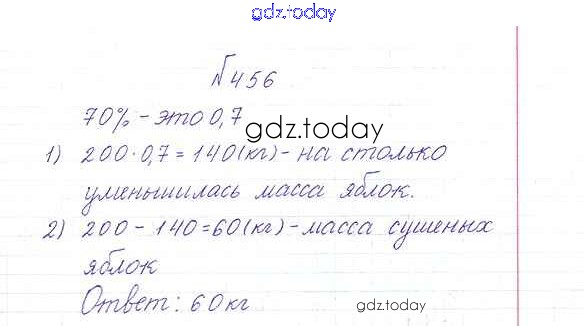 gdz.today
№456
70% - это 0,7
gdz.today
1) 200·0,7=140(кг) - на столько
уменьшилась масса яблок.
2) 200 - 140=60(кг) - масса сушеных
яблок
Ответ: 60кг
gdz.today